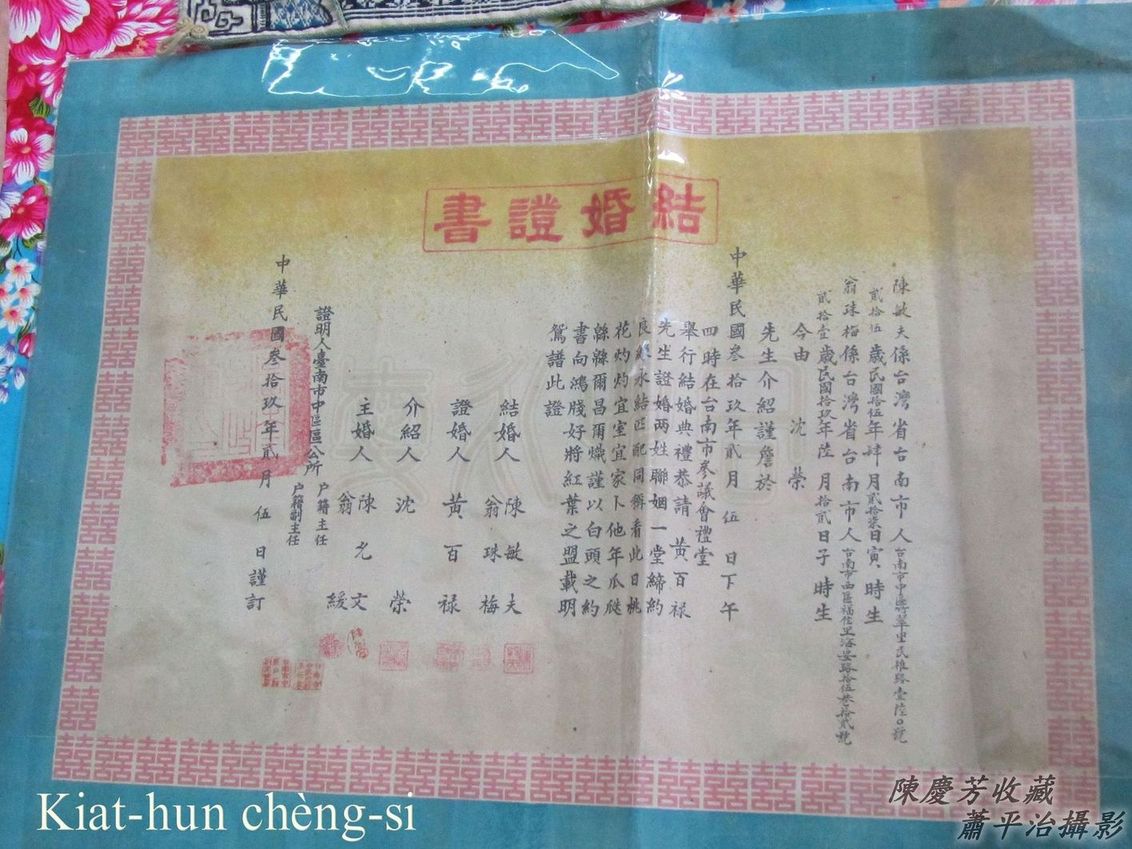 結婚證書
陳敏夫係台灣省台南市人
貳拾伍歲民國拾伍年肆月貳拾柒日寅時生
翁珠梅係台灣省台南市人台南市西區福住里海安路拾伍巷拾貳號
貳拾壹歲民國拾玖年陸月拾貳日子時生
今由 沈榮
先生介紹謹詹於
中華民國參拾玖年貳月伍日下午
四時在台南市參議會禮堂
舉行結婚典禮恭請 黃百祿
先生證婚两姓聯姻一堂締約
良緣永結匹配同稱看此日桃
花灼灼宜室宜家卜他年瓜瓞
緜緜爾昌爾熾謹以白頭之約
書向鴻牋好將紅葉之盟載明
鴛譜此證
結婚人 陳敏夫
翁珠梅
證婚人 黃百祿
介紹人 沈榮
主婚人 陳允文
翁緩
證明人臺南市中區區公所 戶籍主任
戶籍副主任
中華民國叁拾玖年貳月伍日謹訂
Kiat-hun chèng-si
陳慶芳收藏
蕭平治攝影